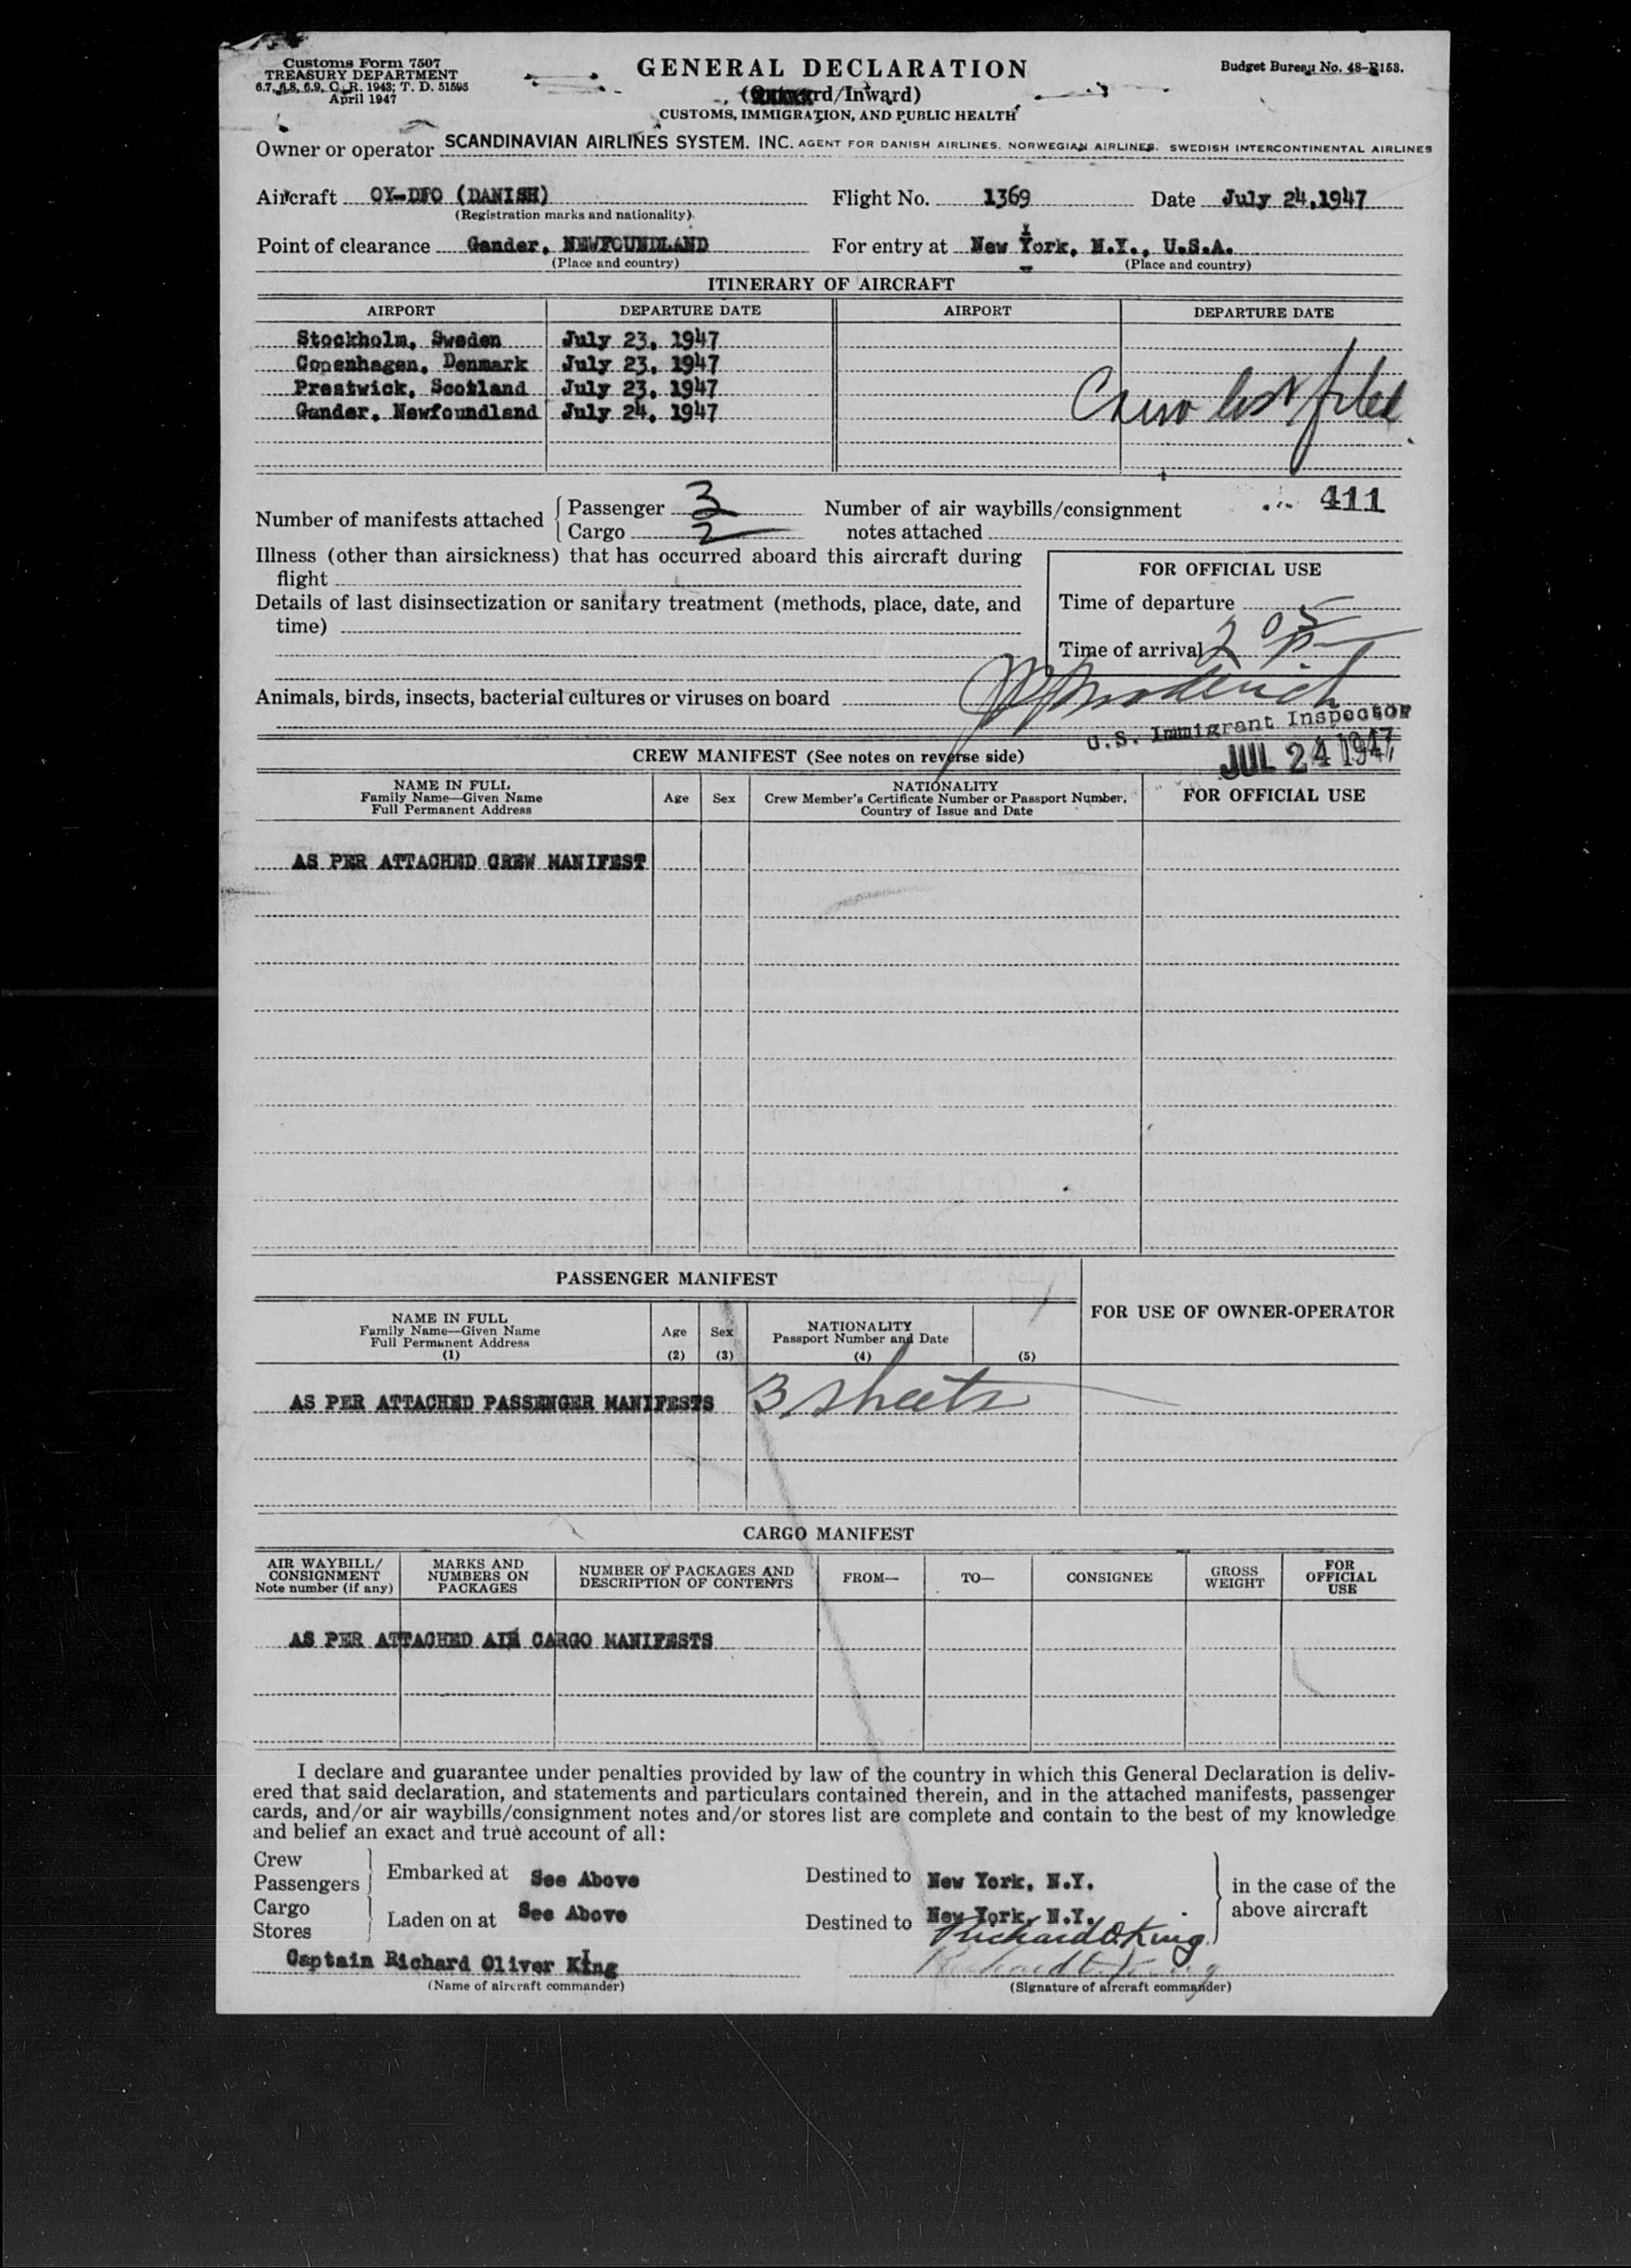 Customs Form 7507
TREASURY DEPARTMENT
6.7, 6.8, 6.9, C. R. 1943; T. D. 51595
April 1947
GENERAL DECLARATION
(Outward/Inward)
CUSTOMS, IMMIGRATION, AND PUBLIC HEALTH
Budget Bureau No. 48-R153.
Owner or operator SCANDINAVIAN AIRLINES SYSTEM. INC. AGENT FOR DANISH AIRLINES, NORWEGIAN AIRLINES, SWEDISH INTERCONTINENTAL AIRLINES
Aircraft OY-DFO (DANISH) Flight No. 1369 Date July 24,1947
(Registration marks and nationality)
Point of clearance Gander, NEWFOUNDLAND For entry at New York, N.Y., U.S.A.
(Place and country) (Place and country)
ITINERARY OF AIRCRAFT
AIRPORT DEPARTURE DATE AIRPORT DEPARTURE DATE
Stockholm, Sweden July 23, 1947
Copenhagen, Denmark July 23, 1947
Prestwick, Scotland July 23, 1947
Gander, Newfoundland July 24, 1947
Crew list filed
Number of manifests attached { Passenger 3
Cargo 2
Number of air waybills/consignment
notes attached
411
Illness (other than airsickness) that has occurred aboard this aircraft during
flight
Details of last disinsectization or sanitary treatment (methods, place, date, and
time)
FOR OFFICIAL USE
Time of departure
Time of arrival 2 05 P
Animals, birds, insects, bacterial cultures or viruses on board
U.S. Immigrant Inspector
JUL 24 1947
CREW MANIFEST (See notes on reverse side)
NAME IN FULL
Family Name—Given Name
Full Permanent Address
Age Sex
NATIONALITY
Crew Member's Certificate Number or Passport Number,
Country of Issue and Date
FOR OFFICIAL USE
AS PER ATTACHED CREW MANIFEST
PASSENGER MANIFEST
FOR USE OF OWNER-OPERATOR
NAME IN FULL
Family Name—Given Name
Full Permanent Address
(1)
Age
(2)
Sex
(3)
NATIONALITY
Passport Number and Date
(4) (5)
AS PER ATTACHED PASSENGER MANIFESTS 3 sheets
CARGO MANIFEST
AIR WAYBILL/
CONSIGNMENT
Note number (if any)
MARKS AND
NUMBERS ON
PACKAGES
NUMBER OF PACKAGES AND
DESCRIPTION OF CONTENTS
FROM— TO— CONSIGNEE
GROSS
WEIGHT
FOR
OFFICIAL
USE
AS PER ATTACHED AIR CARGO MANIFESTS
I declare and guarantee under penalties provided by law of the country in which this General Declaration is deliv-
ered that said declaration, and statements and particulars contained therein, and in the attached manifests, passenger
cards, and/or air waybills/consignment notes and/or stores list are complete and contain to the best of my knowledge
and belief an exact and true account of all:
Crew
Passengers } Embarked at See Above Destined to New York, N.Y.
Cargo
Stores } Laden on at See Above Destined to New York, N.Y.
in the case of the
above aircraft
Richard O. King
Captain Richard Oliver King Richard O. King
(Name of aircraft commander) (Signature of aircraft commander)